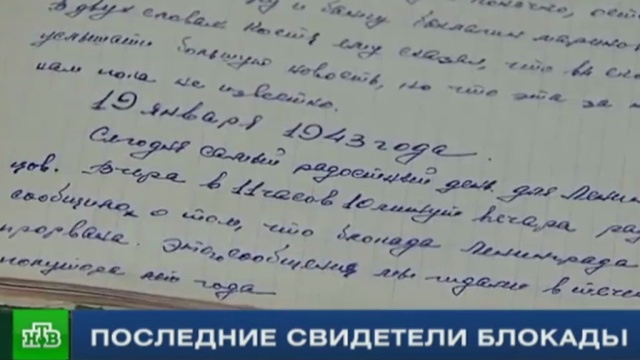 В двух словах Костя ему сказал, что вы ск
услышати большую новость, но что эта за н
нам пока не известно.
19 января 1943 года.
Сегодня самый радостный день для Ленин
цов. Вчера в 11 часов 10 минут вечера рад
сообщило о том, что блокада Ленинграда
прорвана. Это сообщения мы ждали в тече
полутора лет года
НТВ
ПОСЛЕДНИЕ СВИДЕТЕЛИ БЛОКАДЫ